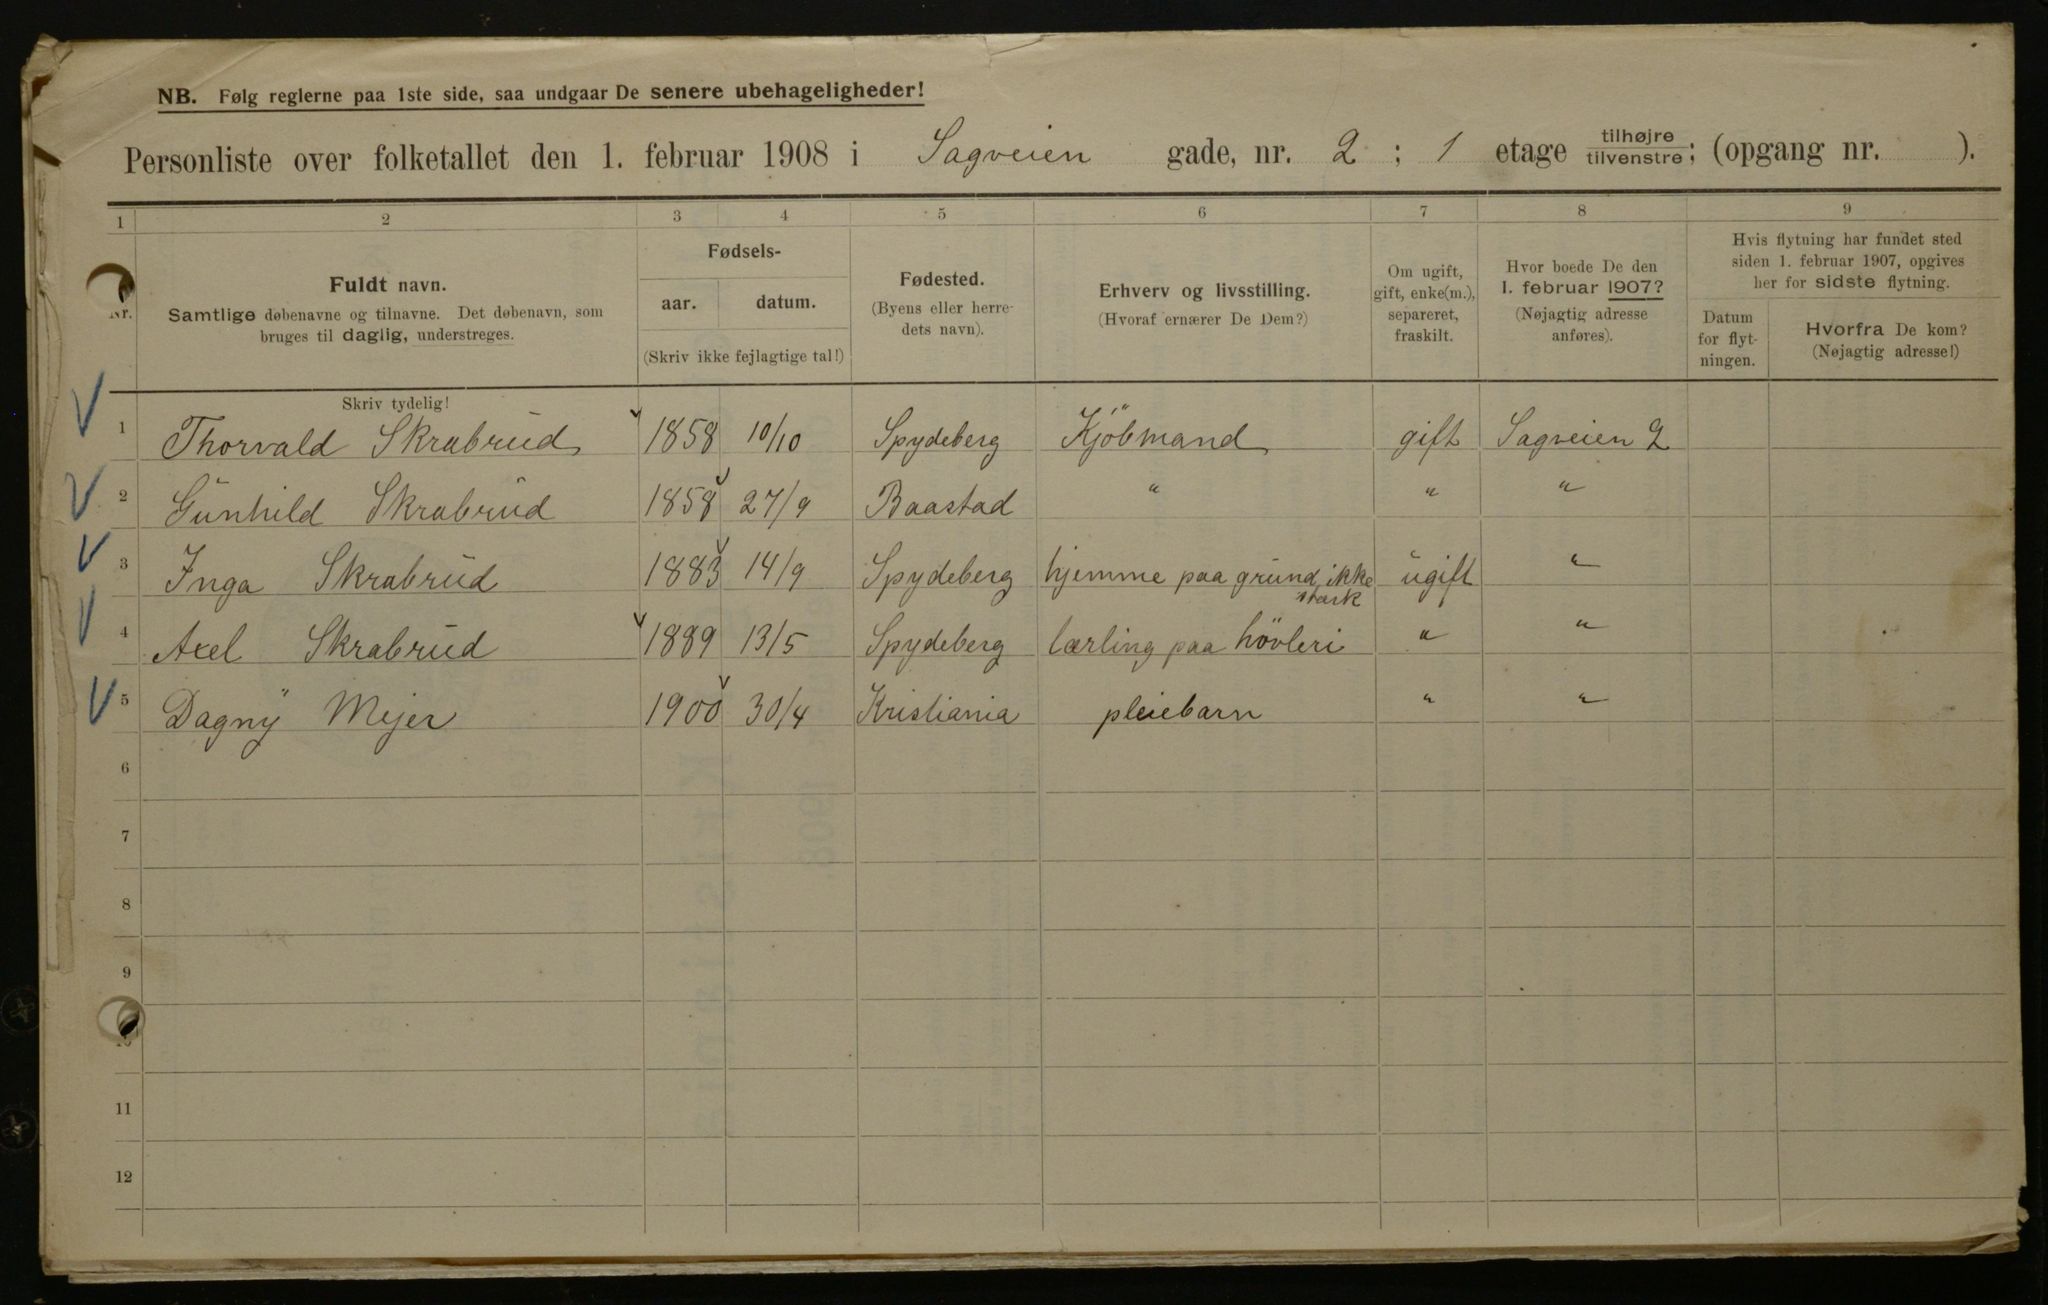 NB. Følg reglerne paa 1ste side, saa undgaar De senere ubehageligheder!
Personliste over folketallet den 1. februar 1908 i Sagveien gade, nr. 2 ; 1 etage tilhøjre tilvenstre; (opgang nr. ).
1 2 3 4 5 6 7 8 9
Nr.
Fuldt navn.
Samtlige døbenavne og tilnavne. Det døbenavn, som
bruges til daglig, understreges.
Skriv tydelig!
Fødsels-
aar. datum.
(Skriv ikke fejlagtige tal!)
Fødested.
(Byens eller herre-
dets navn).
Erhverv og livsstilling.
(Hvoraf ernærer De Dem?)
Om ugift,
gift, enke(m.),
separeret,
fraskilt.
Hvor boede De den
1. februar 1907?
(Nøjagtig adresse
anføres).
Hvis flytning har fundet sted
siden 1. februar 1907, opgives
her for sidste flytning.
Datum
for flyt-
ningen.
Hvorfra De kom?
(Nøjagtig adresse!)
1 Thorvald Skrabrud 1858 10/10 Spydeberg Kjöbmand gift Sagveien 2
2 Gunhild Skrabrud 1858 27/9 Baastad " " "
3 Inga Skrabrud 1883 14/9 Spydeberg hjemme paa grund ikke stærk ugift "
4 Axel Skrabrud 1889 13/5 Spydeberg lærling paa hövleri " "
5 Dagny Mejer 1900 30/4 Kristiania pleiebarn " "
6
7
8
9
10
11
12